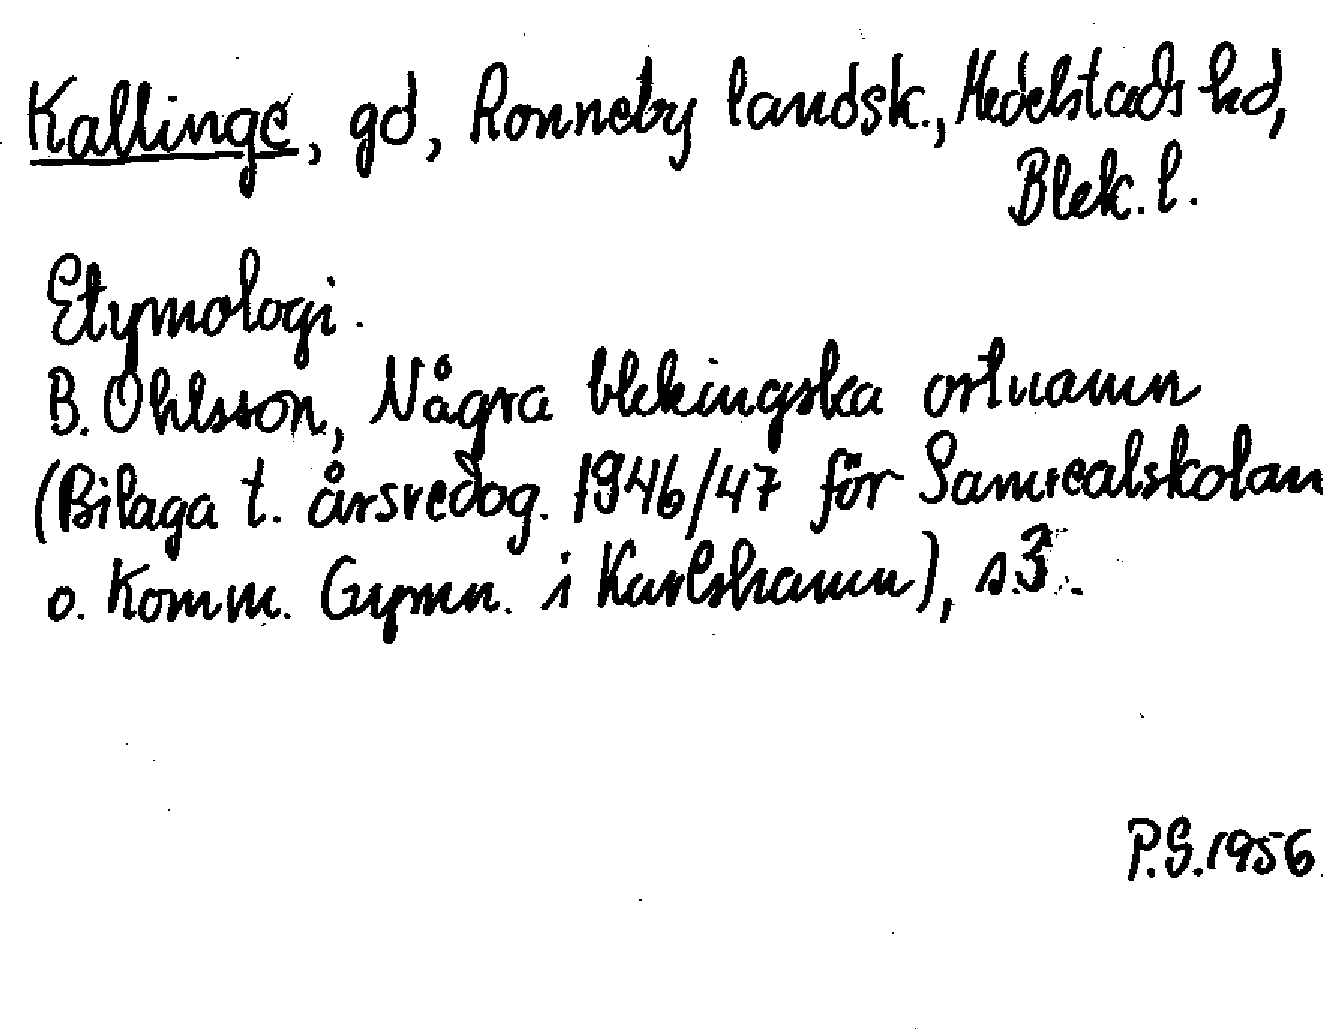 Kallinge, gd, Ronneby landsk., Medelstads hd,
Blek. l.
Etymologi.
B. Ohlsson, Några blekingska ortnamn
(Bilaga t. årsredog. 1946/47 för Samrealskolan
o. Komm. Gymn. i Karlshamn), s. 3.
P.S. 1956.